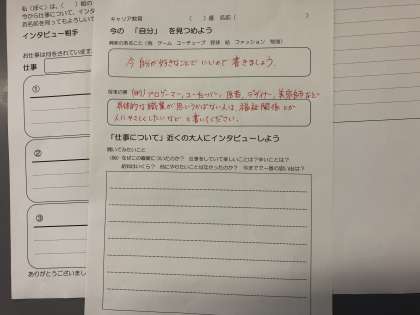 私（ぼく）は、（　　）組の
今から仕事について、インタ
お名前を伺ってもよろしい
インタビュー相手
お仕事は何をされています
仕事
①
②
③
ありがとうございまし
キャリア教育　（　　）組　名前（　　　）
今の「自分」を見つめよう
興味のあること（例　ゲーム　ユーチューブ　野球　絵　ファッション　勉強）
今自分が好きなことでいいので書きましょう。
将来の夢
(例)プロゲーマー、ユーチューバー、医者、デザイナー、美容師など
具体的な職業が思いうかばない人は、福祉関係とか
人にやさしくしたいなどと書いてください。
「仕事について」近くの大人にインタビューしよう
聞いてみたいこと
（例）なぜこの職業についたのか？　仕事をしていて楽しいことは？辛いことは？
給料はいくら？　他にやりたいことはなかったのか？　今までで一番の思い出は？